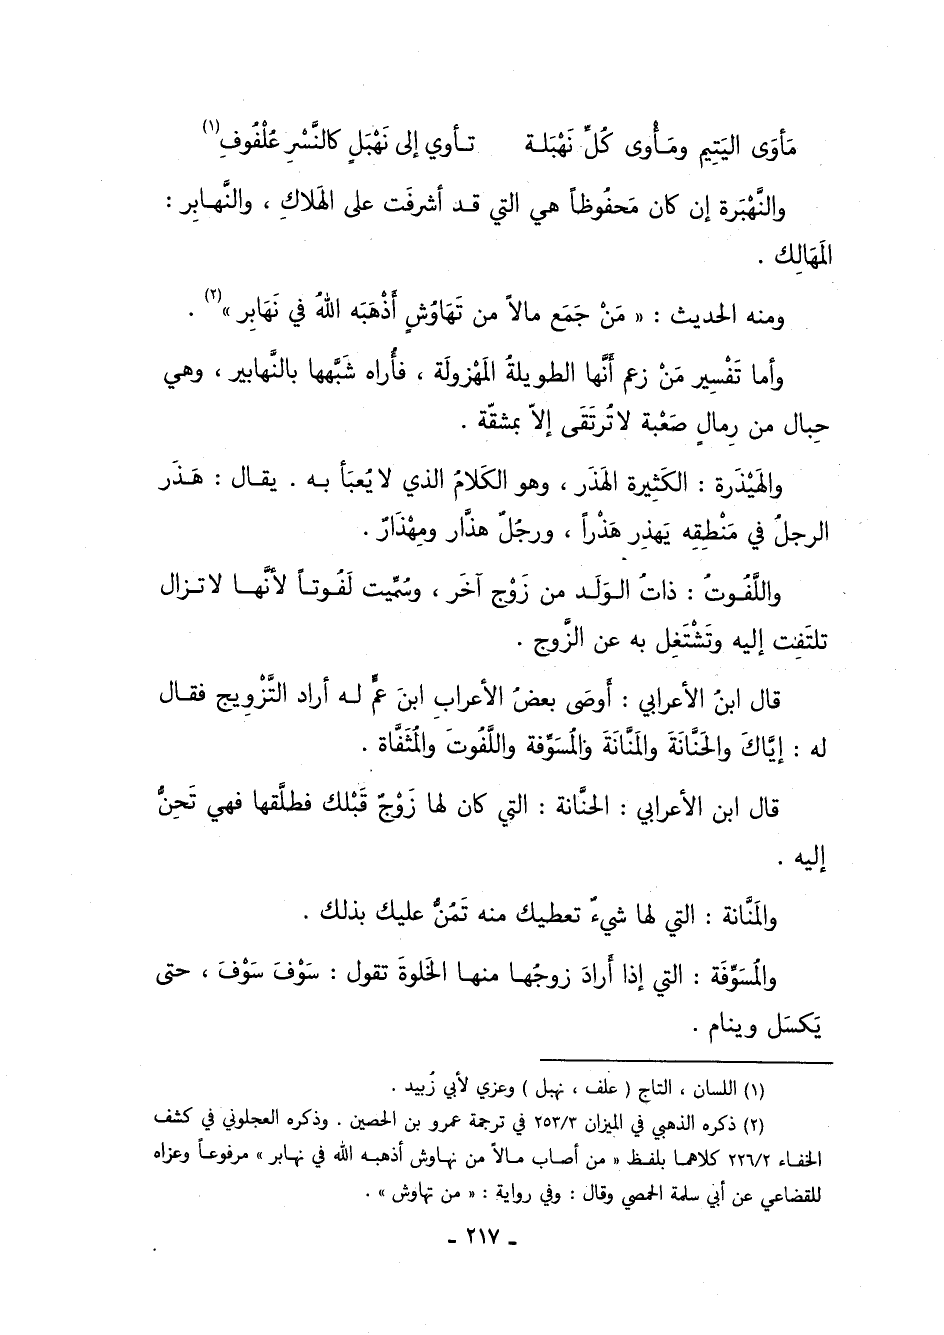 مَأوَى اليَتِيمِ ومَأْوى كُلِّ نَهْبَلة تأوي إلى نَهْبَلٍ كالنَّسْرِ عُلْفُوفِ(١)
والنَّهْبَرة إن كان مَحفُوظاً هي التي قد أشرفَت على الهَلاكِ ، والنَّهابِر :
المَهَالِك .
ومنه الحديث : « مَنْ جَمَع مالاً من تَهَاوُشٍ أَذْهَبَه اللهُ في نَهَابِر »(٢) .
وأما تَفْسِير مَنْ زعم أَنَّها الطويلةُ المَهْزولَة ، فأُراه شَبَّهها بالنَّهابير ، وهي
حِبال من رِمالٍ صَعْبة لا تُرتَقَى إلاّ بمشقّة .
والهَيْذَرة : الكَثِيرة الهَذَر ، وهو الكَلامُ الذي لا يُعبَأ به . يقال : هَذَر
الرجلُ في مَنْطِقِه يَهذِر هَذْراً ، ورجُلٌ هذَّار ومِهْذَارٌ .
واللَّفُوتُ : ذاتُ الوَلَد من زَوْج آخَر ، وسُمِّيت لَفُوتاً لأنَّها لا تزال
تلتَفِت إليه وتَشْتَغِل به عن الزَّوج .
قال ابنُ الأعرابي : أَوصَى بعضُ الأعرابِ ابنَ عمٍّ له أراد التَّزْوِيج فقال
له : إيَّاكَ والحَنَّانَةَ والمَنَّانَةَ والمُسَوِّفة واللَّفُوتَ والمُثَفَّاة .
قال ابن الأعرابي : الحنَّانة : التي كان لها زَوْجٌ قَبْلك فطلَّقها فهي تَحِنُّ
إليه .
والمَنَّانة : التي لها شيءٌ تعطيك منه تَمُنُّ عليك بذلك .
والمُسَوِّفَة : التي إذا أَرادَ زوجُها منها الخَلوةَ تقول : سَوْفَ سَوْفَ ، حتى
يَكسَل وينام .
(١) اللسان ، التاج ( علف ، نهبل ) وعزي لأبي زُبيد .
(٢) ذكره الذهبي في الميزان ٢٥٣/٣ في ترجمة عمرو بن الحصين . وذكره العجلوني في كشف
الخفاء ٢٢٦/٢ كلاهما بلفظ « من أصاب مالاً من نهاوش أذهبه الله في نهابر » مرفوعاً وعزاه
للقضاعي عن أبي سلمة الحمصي وقال : وفي رواية : « من تهاوش » .
- ٢١٧ -